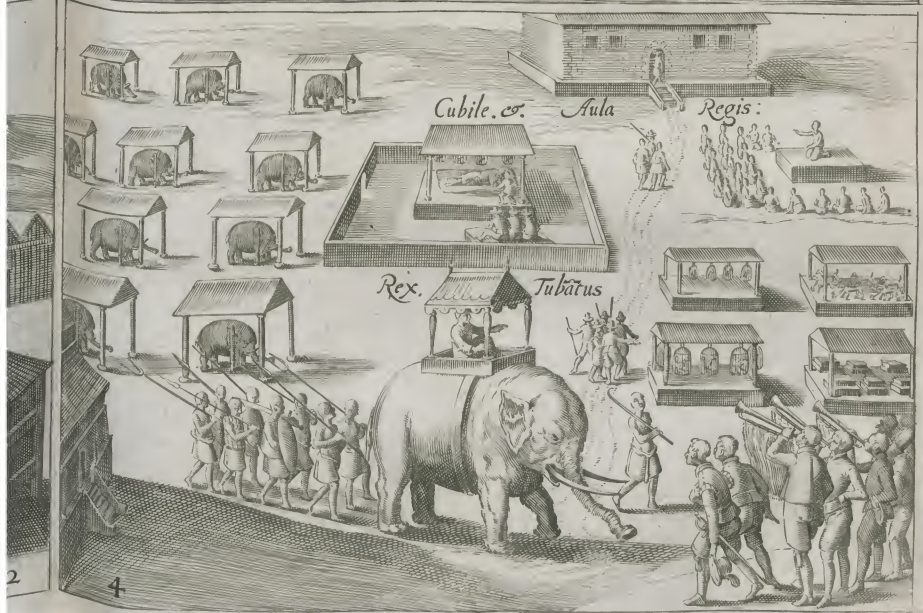 Cubile. &. Aula Regis:
Rex. Tubãtus
2
4